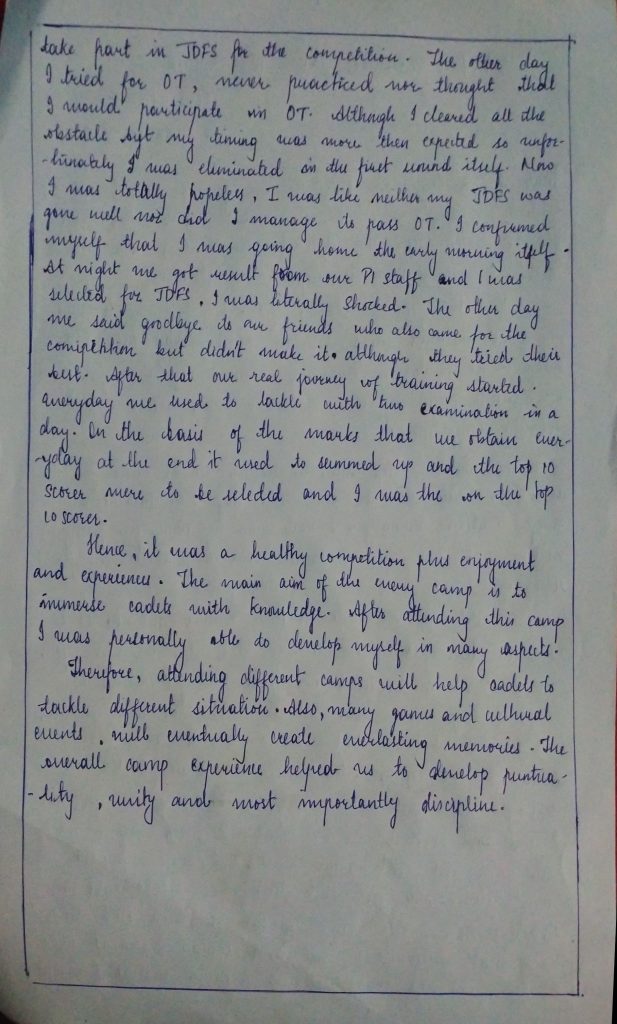 take part in JDFS for the competition. The other day
I tried for OT, never practiced nor thought that
I would participate in OT. Although I cleared all the
obstacle byt my timing was more then expected so unfor-
-tunately I was eleminated in the first round itself. Now
I was totally hopeless, I was like neither my JDFS was
gone well nor did I manage to pass OT. I confirmed
myself that I was going home the early morning itself.
At night we got result from our PI staff and I was
selected for JDFS, I was literally shocked. The other day
we said goodbye to our friends who also came for the
competition but didn't make it. although they tried their
best. After that our real journey of training started.
everyday we used to tackle with two examination in a
day. On the basis of the marks that we obtain ever-
-yday at the end it used to summed up and the top 10
scorer were to be seleded and I was the on the top
10 scorer.
Hence, it was a healthy competition plus enjoyment
and experience. The main aim of the every camp is to
immerse cadets with knowledge. After attending this camp
I was personally able to develop myself in many aspects.
Therefore, attending different camps will help cadets to
tackle different situation. Also, many games and cultural
events, will eventually create everlasting memories. The
overall camp experience helped us to develop puntua-
-lity, unity and most importantly discipline.